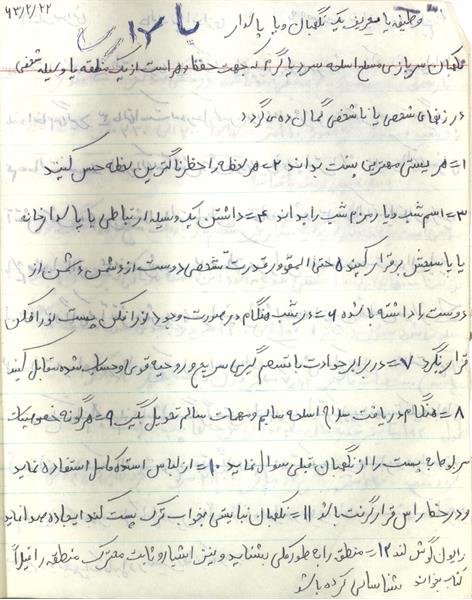 ۶۳/۲/۲۲
وظیفه یا مورین یک نگهبان و یا پاسدار
نگهبان سربازی مسلح اسلحه سرد یا گرم که جهت حفظ و حراست از یک منطقه یا وسیله شخصی
در زمانی شخصی یا نا شخصی گمارده می‌گردد
۱= هر پستی مهمترین پست بداند ۲= هر لحظه را خطرناکترین لحظه حس کنید
۳= اسم شب و یا رمز شب را بداند ۴= داشتن یک وسیله ارتباطی با پاسدارخانه
یا پاسبخش برقرار کنید ۵ حتی المقدور قدرت تشخیص دوست از دشمن و دشمن از
دوست را داشته باشد ۶= در شب هنگام در صورت وجود نورافکن پشت نورافکن
قرار نگیرد ۷= در برابر حوادث با تصمیم گیری سریع و روحیه قوی و حساب شده مقابله کنید
۸= هنگام دریافت سلاح اسلحه سالم و مهمات سالم تحویل بگیر ۹= هر گونه خصوصیات
مربوط به پست را از نگهبان قبلی سوال نماید ۱۰= از لباس استتار کامل استفاده نماید
و در خط راس قرار گرفت باشد ۱۱= نگهبان نبایستی بخواب ترک پست کند ایجاد صدا نماید
رادیو گوش کند ۱۲= منطق را به طور کلی بشناسد و نیز اشیاء ثابت متحرک منطقه را قبلاً
کتاب بخواند شناسایی کرده باشد